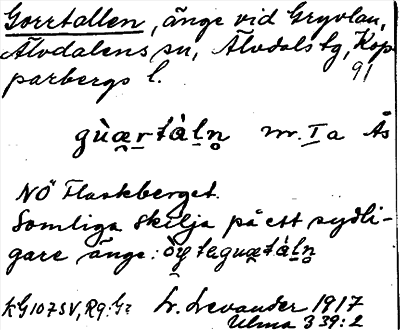 Gorrtallen, änge vid Gryvlan,
Älvdalens sn, Älvdals tg, Kop-
parbergs l.
91
gùæ̯r̠tàl̠n̥ m. I a Ås
NÖ Flaskberget.
Somliga skilja på ett sydli-
gare änge:
KG107SV, R9:G2 L. Levander 1917
Ulma 339:2